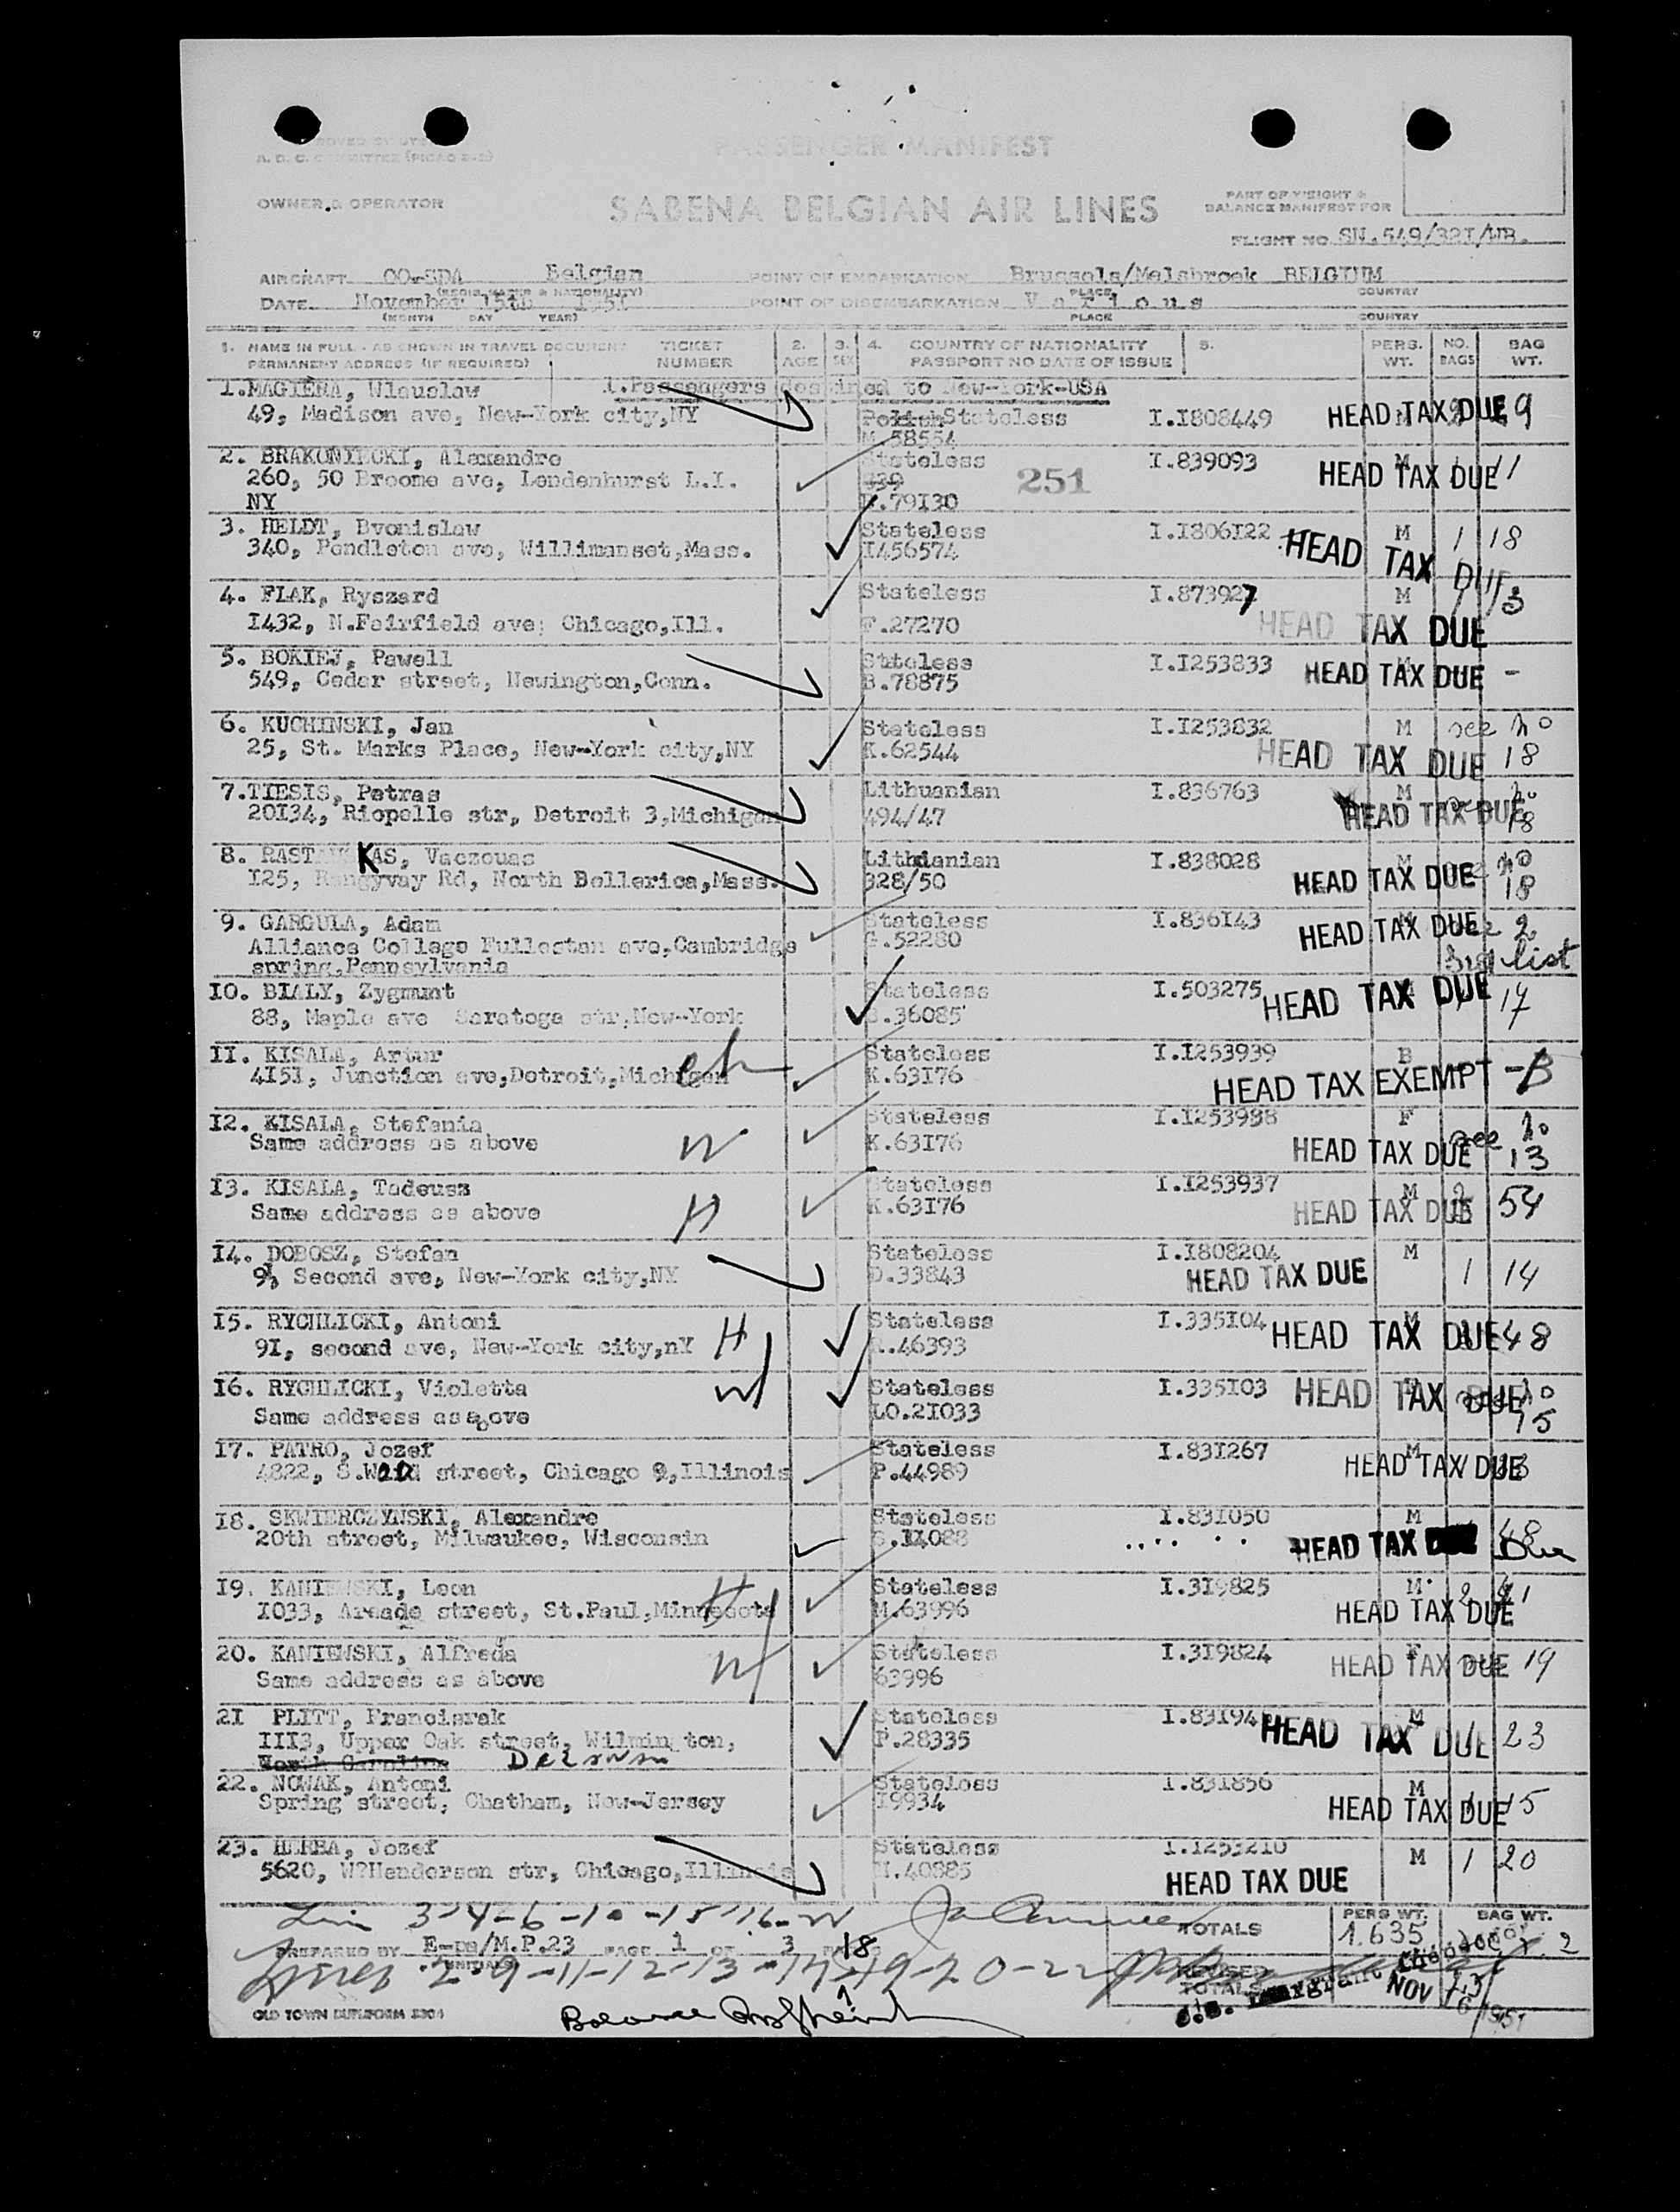 PASSENGER MANIFEST
A. D. C. COMMITTEE (PICAO 2-2)
OWNER & OPERATOR
SABENA BELGIAN AIR LINES
PART OF WEIGHT &
BALANCE MANIFEST FOR
FLIGHT NO SN.549/321/WB.
AIRCRAFT OO-SDA Belgian POINT OF EMBARKATION Brussels/Melsbroek BELGIUM
(REGIS. MARKS & NATIONALITY) PLACE COUNTRY
DATE November 15th 1951 POINT OF DISEMBARKATION Various
(MONTH DAY YEAR) PLACE COUNTRY
1. NAME IN FULL - AS SHOWN IN TRAVEL DOCUMENT TICKET 2. 3. 4. COUNTRY OF NATIONALITY 5. PERS. NO. BAG
PERMANENT ADDRESS (IF REQUIRED) NUMBER AGE SEX PASSPORT NO DATE OF ISSUE WT. BAGS WT.
1.MAGIERA, Wlauslaw 1.Passengers destined to New-York-USA
49, Madison ave, New-York city,NY Polish Stateless I.I808449 HEAD TAX DUE 9
M.58554
2. BRAKONIECKI, Alexandre Stateless I.839093 M
260, 50 Broome ave, Lendenhurst L.I. 839 251 HEAD TAX DUE 11
NY B.79I30
3. HELDT, Bvonislaw Stateless I.I806I22 M 1 18
340, Pendleton ave, Willimanset,Mass. I456574 HEAD TAX DUE
4. FLAK, Ryszard Stateless I.873927 M 1 13
I432, N.Fairfield ave; Chicago,Ill. F.27270 HEAD TAX DUE
5. BOKIEJ, Pawell Stateless I.I253833
549, Cedar street, Newington,Conn. B.78875 HEAD TAX DUE -
6. KUCHINSKI, Jan Stateless I.I253832 M see no
25, St. Marks Place, New-York city,NY K.62544 HEAD TAX DUE 18
7.TIESIS, Petras Lithuanian I.836763 M
20I34, Riopelle str, Detroit 3,Michigan 494/47 HEAD TAX DUE 18
8. RAST KAS, Vaczouas Lithuanian I.838028 M no
I25, Rangyvay Rd, North Bellerica,Mass. 328/50 HEAD TAX DUE 18
9. GARGULA, Adam Stateless I.836I43 M see 2
Alliance College Fullestan ave,Cambridge G.52280 HEAD TAX DUE
spring,Pennsylvania 3rd list
IO. BIALY, Zygmunt Stateless I.503275 HEAD TAX DUE 17
88, Maple ave Saratoga str,New-York B.36085
II. KISALA, Artur Stateless I.I253939 B
4I51, Junction ave,Detroit,Michigan ch K.63I76 HEAD TAX EXEMPT -B
I2. KISALA, Stefania Stateless I.I253938 F see no
Same address as above W K.63I76 HEAD TAX DUE 13
I3. KISALA, Tadeusz Stateless I.I253937 M 2 54
Same address as above H K.63I76 HEAD TAX DUE
I4. DOBOSZ, Stefan Stateless I.I808204 M 1 14
91, Second ave, New-York city,NY D.33843 HEAD TAX DUE
I5. RYCHLICKI, Antoni H Stateless I.335I04 M 48
9I, second ave, New-York city,nY R.46393 HEAD TAX DUE
I6. RYCHLICKI, Violetta W Stateless I.335I03 HEAD TAX DUE no
Same address as above LO.2I033 15
I7. PATRO, Jozef Stateless I.83I267 M
4822, S.Wood street, Chicago 9,Illinois P.44989 HEAD TAX DUE
I8. SKWIERCZYNSKI, Alexandre Stateless I.83I050 M 48
20th street, Milwaukee, Wisconsin S.II088 HEAD TAX DUE Due
I9. KANIEWSKI, Leon H Stateless I.3I9825 M 2 41
I033, Arcade street, St.Paul,Minnesota M.63996 HEAD TAX DUE
20. KANIEWSKI, Alfreda W Stateless I.3I9824 F 19
Same address as above 63996 HEAD TAX DUE
2I PLITT, Franciszak Stateless I.83I94 HEAD TAX DUE M 1 23
III3, Upper Oak street, Wilmington, P.28335
North Carolina
22. NOWAK, Antoni Stateless I.83I856 M 1 15
Spring street, Chatham, New-Jersey I9934 HEAD TAX DUE
23. HERBA, Jozef Stateless I.I253210 M 1 20
5620, W?Henderson str, Chicago,Illinois H.40885 HEAD TAX DUE
3-4-6-10-15-16-21
TOTALS PERS WT. 1.635 BAG WT.
PREPARED BY E-pa/M.P.23 PAGE 1 OF 3 18
INITIALS
2-9-11-12-13-17-19-20-22
REVISED TOTALS
U.S. Immigrant NOV 16 1951
OLD TOWN DUPLIFORM 2304